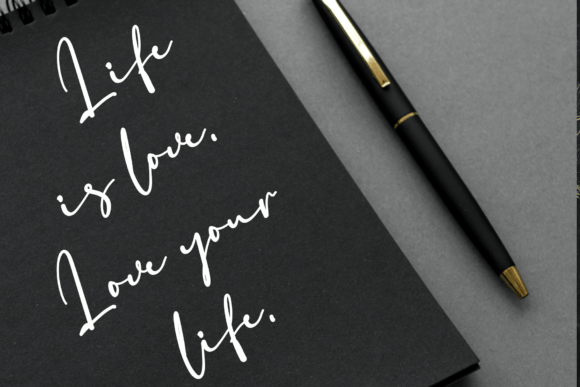 Life
is love.
Love your
life.